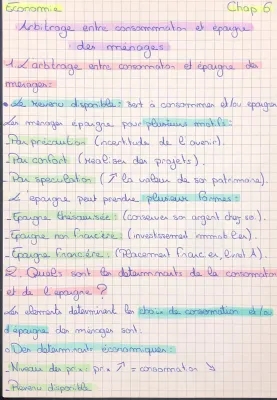 Economie
Chap 6
Arbitrage entre consommation et épargne
des ménages
1. L'arbitrage entre consommation et épargne des
ménages:
• Le revenu disponible: sert à consommer et/ou épargner
Les ménages épargne pour plusieurs motifs:
- Par précaution (incertitude de l'avenir).
- Par confort (réaliser des projets).
- Par spéculation (↗ la valeur de son patrimoine).
L'épargne peut prendre plusieurs formes:
- Epargne thésaurisée: (conserver son argent chez soi).
- Epargne non financière: (investissement immobilier).
- Epargne financière: (Placement financier, livret A).
2. Quels sont les déterminants de la consommation
et de l'épargne?
Les éléments déterminent les choix de consommation et/ou
d'épargne des ménages sont:
• Des déterminants économiques:
- Niveau des prix: prix ↗ = consommation ↘
- Revenu disponible